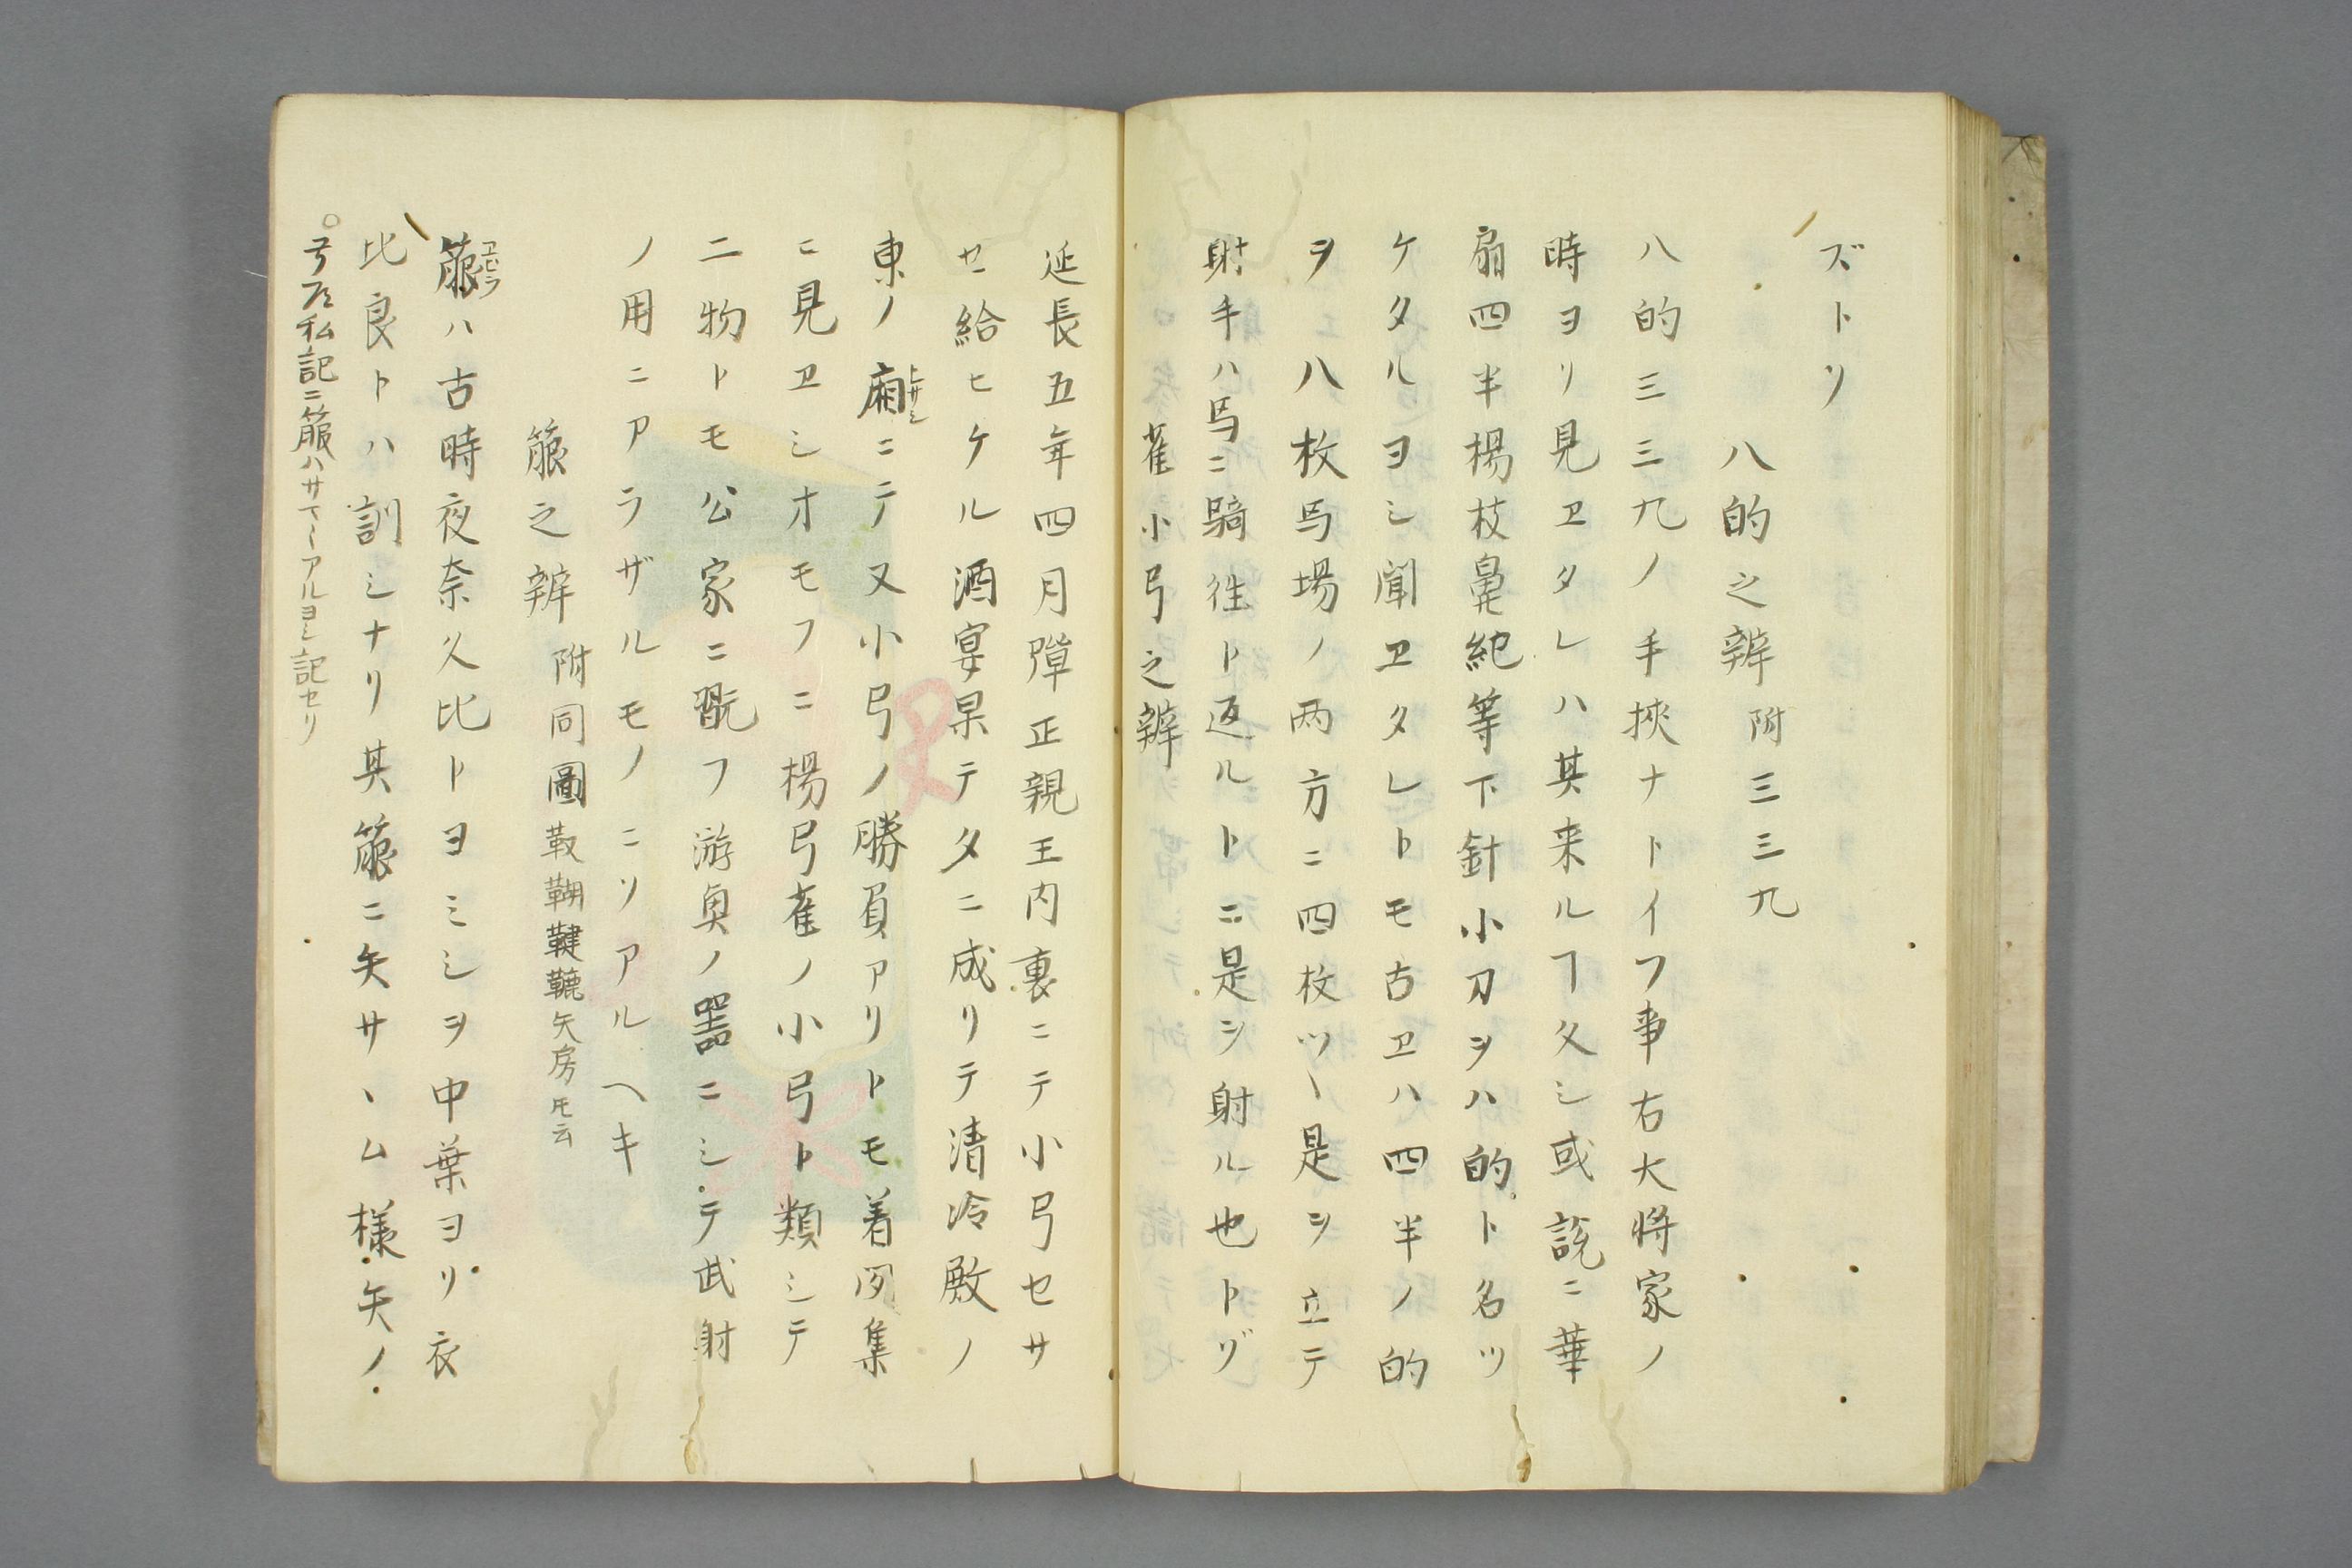 ズトソ
八的之辨 附三三九
八的三三九ノ手挾ナトイフ事右大将家ノ
時ヨリ見ヱタレハ其来ルヿ久シ或説ニ華
扇四半楊枝鼻紀等下針小刀ヲハ的ト名ツ
ケタルヨシ聞ヱタレトモ古ヱハ四半ノ的
ヲ八枚馬場ノ两方ニ四枚ツヽ是ヲ立テ
射手ハ馬ニ騎徃ト返ルトニ是ヲ射ル也トゾ
雀小弓之辨
延長五年四月弾正親王内裏ニテ小弓セサ
セ給ヒケル酒宴果テ夕ニ成リテ清冷殿ノ
東ノ廂ヒサシニテ又小弓ノ勝負アリトモ着聞集
ニ見ヱシオモフニ楊弓雀ノ小弓ト類シテ
二物トモ公家ニ翫フ游臾ノ器ニシテ武射
ノ用ニアラザルモノニソアルヘキ
箙之辨 附同圖靫鞠鞬韊矢房モ云
箙ヱビラハ古時夜奈久比トヨミシヲ中葉ヨリ衣
比良トハ訓シナリ其箙ニ矢サヽム様矢ノ
私記ニ箙ハサマ〱アルヨシ記セリ